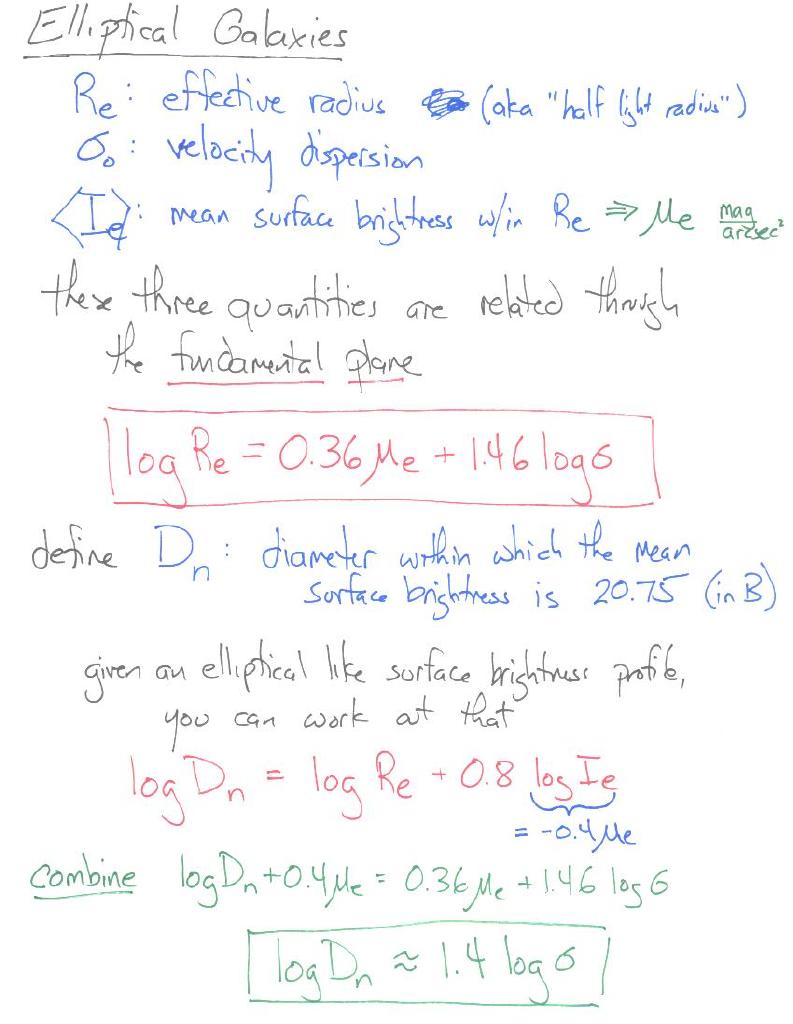 Elliptical Galaxies
Re: effective radius (aka "half light radius")
σ₀: velocity dispersion
<Ie>: mean surface brightness w/in Re ⇒ μe mag/arcsec²
these three quantities are related through
the fundamental plane
log Re = 0.36 μe + 1.46 log σ
define Dn: diameter within which the mean
surface brightness is 20.75 (in B)
given an elliptical like surface brightness profile,
you can work out that
log Dn = log Re + 0.8 log Ie
= -0.4 μe
Combine log Dn + 0.4 μe = 0.36 μe + 1.46 log σ
log Dn ≈ 1.4 log σ